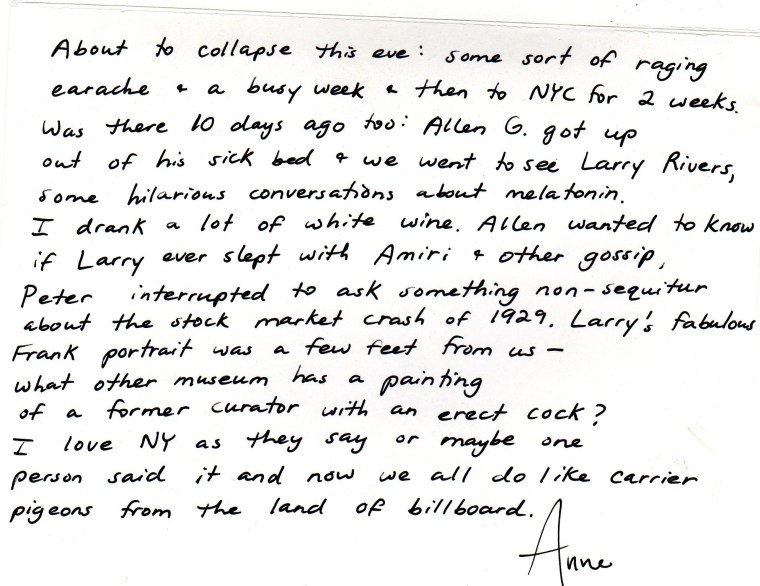 About to collapse this eve: some sort of raging
earache & a busy week & then to NYC for 2 weeks.
Was there 10 days ago too: Allen G. got up
out of his sick bed & we went to see Larry Rivers,
some hilarious conversations about melatonin.
I drank a lot of white wine. Allen wanted to know
if Larry ever slept with Amiri & other gossip,
Peter interrupted to ask something non-sequitur
about the stock market crash of 1929. Larry's fabulous
Frank portrait was a few feet from us —
what other museum has a painting
of a former curator with an erect cock?
I love NY as they say or maybe one
person said it and now we all do like carrier
pigeons from the land of billboard.
Anne